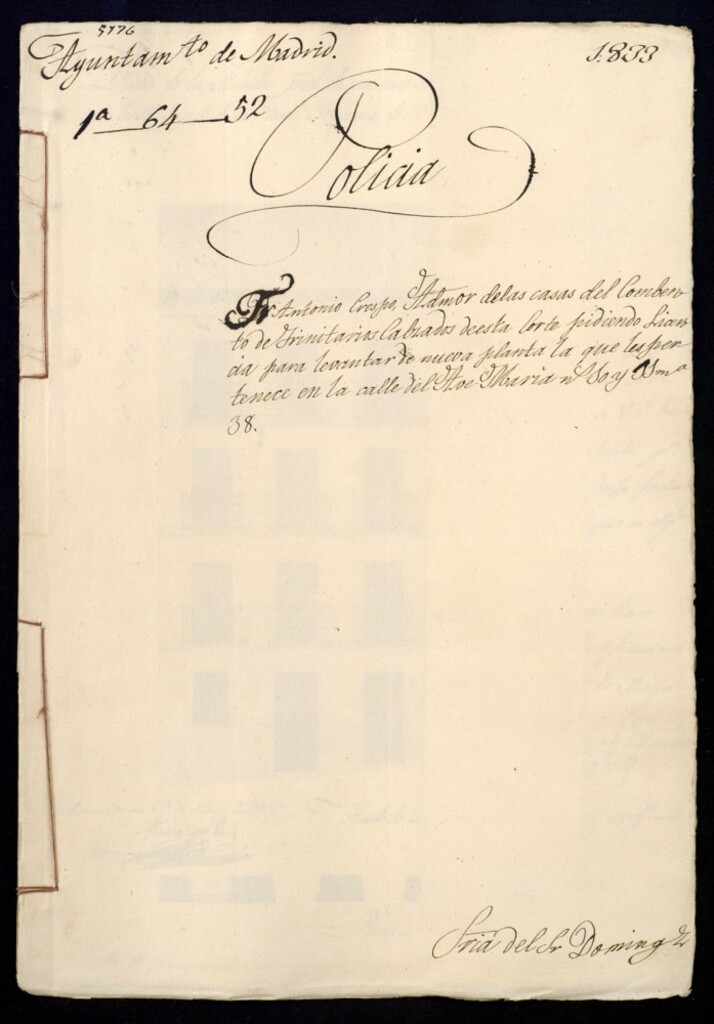 5776
Ayuntam.to de Madrid.
1833
1a 64 52
Policia
Fr. Antonio Crespo, Admor delas casas del Comben
to de Trinitarios Calzados deesta Corte pidiendo Licen
cia para levantar de nueva planta la que les per
tenece en la calle del Ave Maria nº 30 y
38.
Sria del Sr Doming